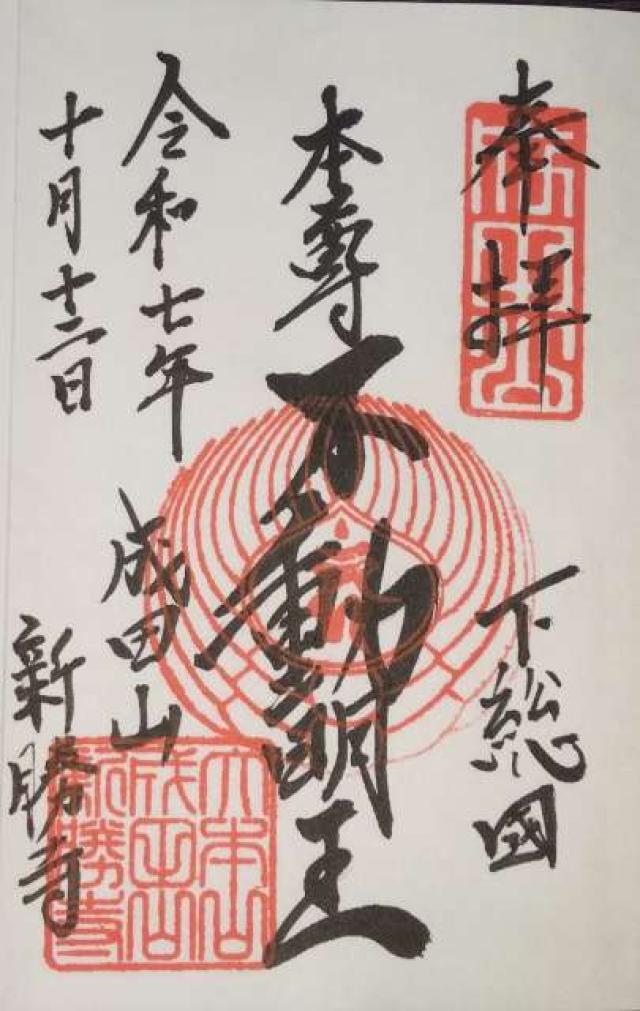 奉拝
下総國
本尊不動明王
令和七年
十月十二日
成田山
新勝寺
大本山
成田山
新勝寺